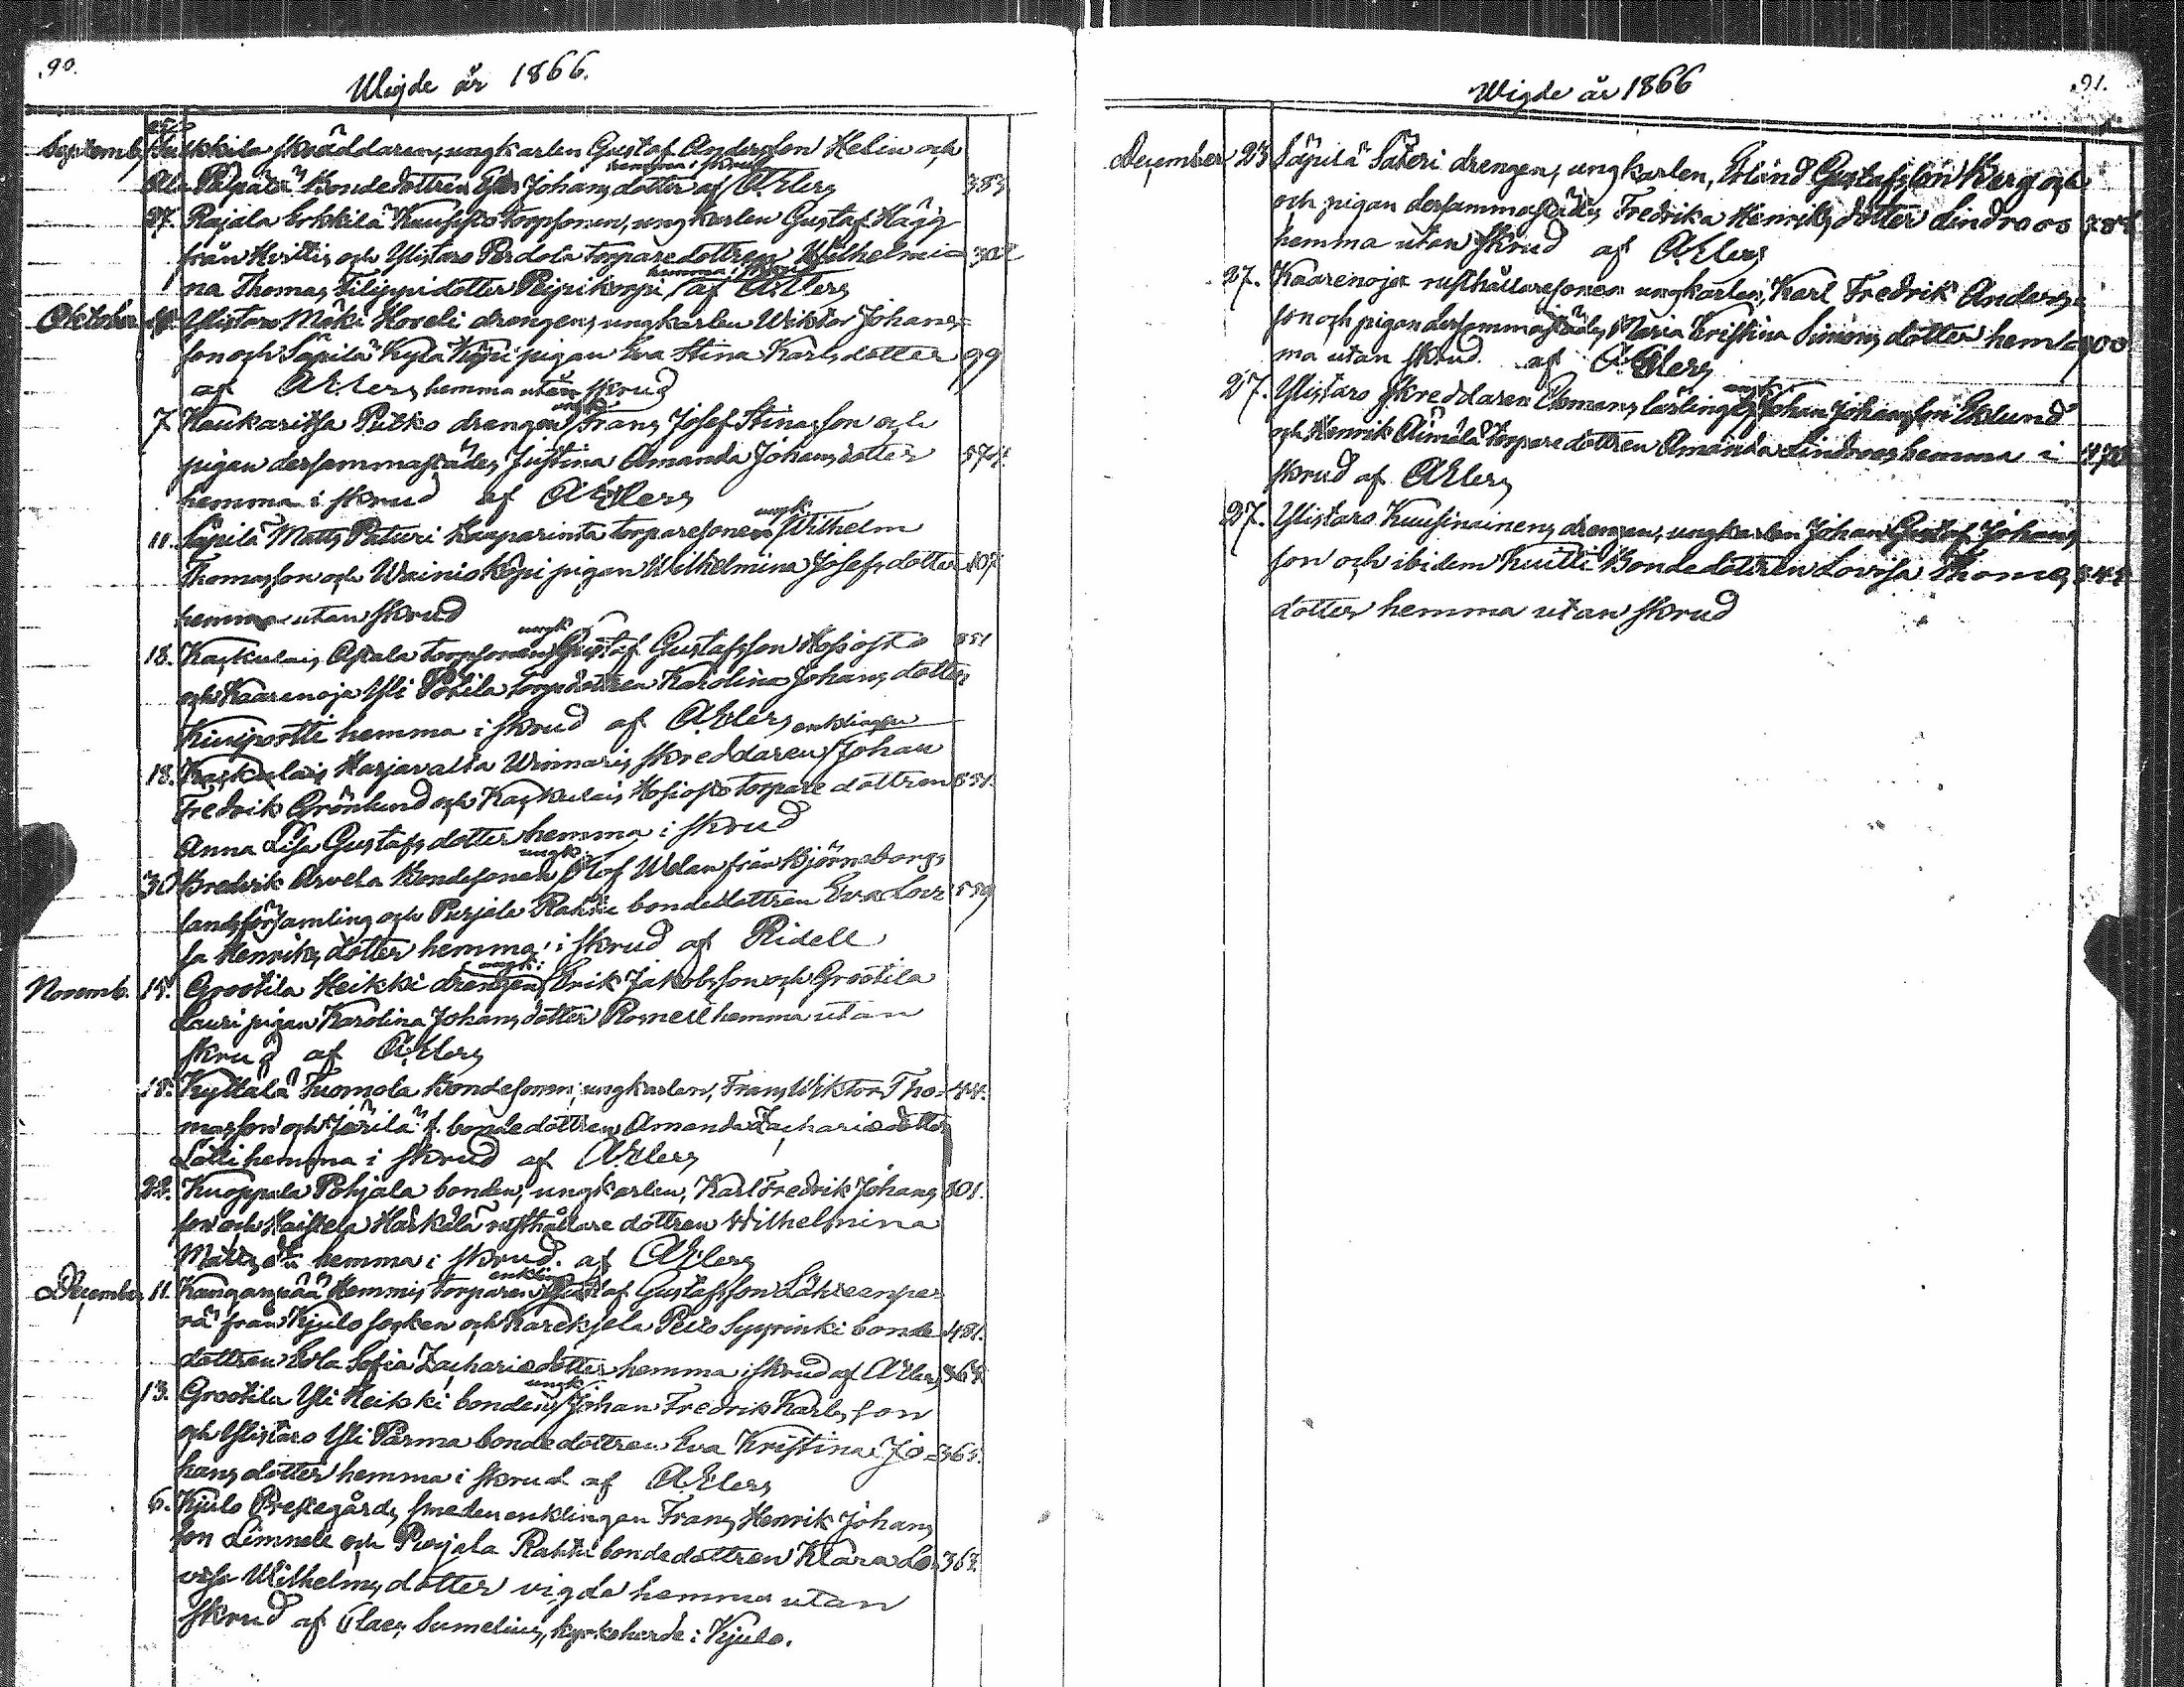 90.
Wigde år 1866.
Septemb. skräddaren, ungkarlen Gustaf Andersson Helin och
hemma i skrud
Bondedottren Johans dotter af A. Elers 383
27. Rajala Erkkilä torpsonen, ungkarlen Gustaf Hägg
från och Ylistaro Perdola torparedottren Wilhelmi= 302
hemma i skrud
na Thomas Filippidotter af A. Elers
Oktober Ylistaro Mäki Hoveli drengen, ungkarlen Wiktor Johans
son och Säpilä Kylä pigan Eva Stina Karls dotter 99
af A. Elers hemma utan skrud
ungk.
7 Haukaritsa Pitko drengen Frans Josef Stinasson och
pigan dersammastädes Justina Amanda Johans dotter
hemma i skrud af A. Elers
ungk.
11. Säpilä Matts Paturi torparesonen Wilhelm
Thomasson och Wainio pigan Wilhelmina Josefs dotter 107
hemma utan skrud
ungk.
18. Kaskulais Astala torpsonen Gustaf Gustafsson Hosiosto 551
och Kaarenoja Yli torpdottren Karolina Johans dotter
hemma i skrud af A. Elers
enklingen
18. Kaskulais Harjavalta skreddaren Johan
Fredrik Grönlund och Kaskulais Hosiosto torpare dottren 551.
Anna Lisa Gustafs dotter hemma i skrud
ungk.
30 Bredvik Arvela Bondesonen Olof Welan från Björneborgs
landsförsamling och Purjala bondedottren Eva Lovi 559
sa Henriks dotter hemma i skrud af Ridell
ungk:
Novemb. 15. Grootila Heikki drengen Erik Jakobsson och Grootila
Lauri pigan Karolina Johans dotter hemma utan
skrud af A. Elers
18. Kyttälä Tuomola Bondesonen, ungkarlen, Frans Wiktor Tho= 44.
masson och Järilä f. bondedottren Amanda Zacharie dotter
Lälli hemma i skrud af A. Elers
22. Kuoppala Pohjala bonden, ungkarlen, Karl Fredrik Johans 801.
son och Härkälä rusthållare dottren Wilhelmina
Matts dtr hemma i skrud. af A. Elers
enklingen
December 11. Kanganpää Hemmis torparen Gustaf Gustafsson Lähteenpe
rä från Kjulo socken och Kareksela Pello Syprinki bonde 481.
dottren Eva Sofia Zacharie dotter hemma i skrud af A. Elers
ungk.
13. Grootila Yli Heikki bonden Johan Fredrik Karls son
och Ylistaro Yli Parma bonde dottren Eva Kristina Jo= 365.
hans dotter hemma i skrud af A. Elers
6. Kjulo Prestegårds smeden enklingen Frans Henrik Johans
son Limnell och Purjala bondedottren Klara Lo
visa Wilhelms dotter vigda hemma utan
skrud af Claes Sumelius, kyrkoherde i Kjulo.
Wigde år 1866
91.
December 23 Säpilä Säteri drengen, ungkarlen, Erland Gustafsson Berg och
och pigan dersammastädes Fredrika Henriks dotter Lindroos
hemma utan skrud af A. Elers
27. Kaarenoja rusthållaresonen ungkarlen, Karl Fredrik Anders=
son och pigan dersammastädes, Maria Kristina Simons dotter hem=
ma utan skrud. af A. Elers
ungk:
27. Ylistaro Skreddaren Ekmans lärlingen Johan Johansson Eklund
och Henrik Äimälä torpare dottren Amanda Lindroos hemma i
skrud af A. Elers
27. Ylistaro Kuusinainens drengen, ungkarlen Johan Gustaf Johans
son och ibidem Kutti Bondedottren Lovisa Thomas
dotter hemma utan skrud